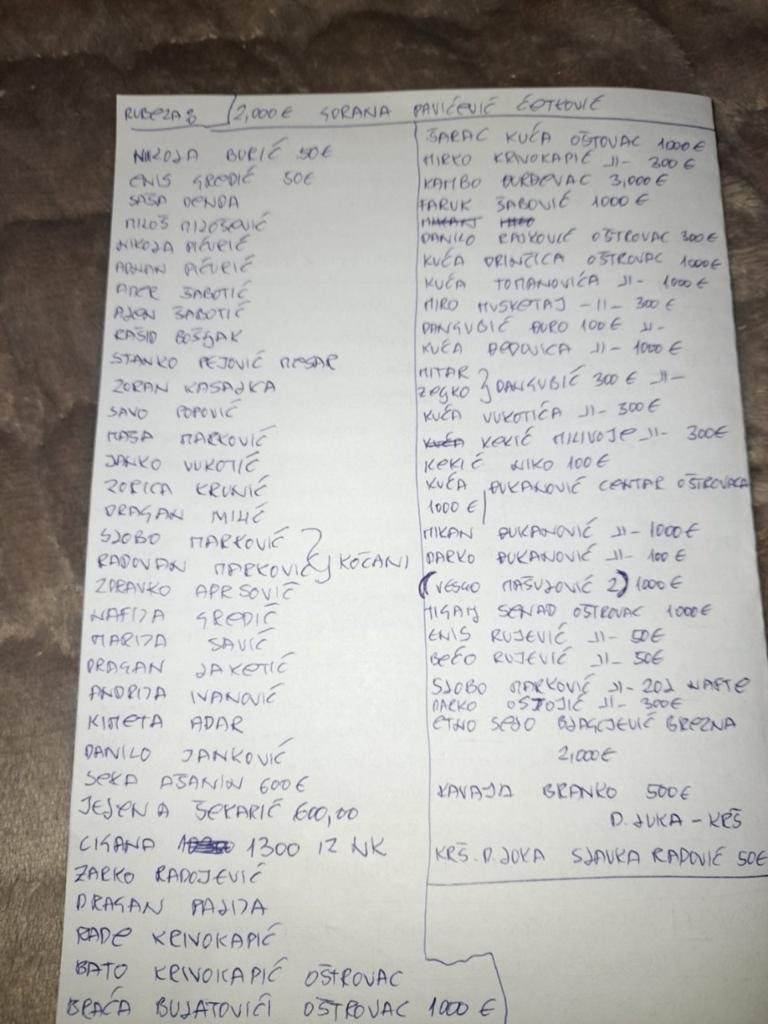 RUBEZA 8 2,000 € GORANA PAVIĆEVIĆ ĆETKOVIĆ
NIKOLA BURIĆ 50€
ENIS GREDIĆ 50€
SAŠA DENDA
MILOŠ MILOŠEVIĆ
NIKOLA PIĆURIĆ
ADNAN PIĆURIĆ
ADER ŠABOTIĆ
AJEN ŠABOTIĆ
RAŠID BOŠJAK
STANKO PEJOVIĆ MESAR
ZORAN KASALKA
SAVO POPOVIĆ
MAŠA MARKOVIĆ
JANKO VUKOTIĆ
ZORICA KRUNIĆ
DRAGAN MILIĆ
SLOBO MARKOVIĆ
RADOVAN MARKOVIĆ } KOČANI
ZDRAVKO APRSOVIĆ
NAFIJA GREDIĆ
MARIJA SAVIĆ
DRAGAN JAKETIĆ
ANDRIJA IVANOVIĆ
KIMETA ADAR
DANILO JANKOVIĆ
SEKA AŠANIN 600€
JELENA ŠEKARIĆ 600,00
CIGANA 1300 IZ NK
ŽARKO RADOJEVIĆ
DRAGAN PAJIJA
RADE KRIVOKAPIĆ
BATO KRIVOKAPIĆ OŠTROVAC
BRAĆA BULATOVIĆI OŠTROVAC 1000 €
ŠARAC KUĆA OŠTOVAC 1000€
MIRKO KRIVOKAPIĆ -II- 300€
KAMBO ĐURĐEVAC 3,000€
FARUK ŠABOVIĆ 1000€
DANILO RAJKOVIĆ OŠTROVAC 300€
KUĆA DRINČIĆA OŠTROVAC 1000€
KUĆA TOMANOVIĆA -II- 1000€
MIRO MUSKETAJ -II- 300€
DANGUBIĆ ĐURO 100€ -II-
KUĆA DEDOVICA -II- 1000€
MITAR
ZELJKO } DANGUBIĆ 300€ -II-
KUĆA VUKOTIĆA -II- 300€
KUĆA KEKIĆ MILIVOJE -II- 300€
KEKIĆ NIKO 100€
KUĆA ĐUKANOVIĆ CENTAR OŠTROVACA
1000€
MIKAN ĐUKANOVIĆ -II- 1000€
DARKO ĐUKANOVIĆ -II- 100€
(VESKO MAŠULOVIĆ 2) 1000€
MIGANJ SENAD OŠTROVAC 1000€
ENIS RUJEVIĆ -II- 50€
BEĆO RUJEVIĆ -II- 50€
SLOBO MARKOVIĆ -II- 20L NAFTE
DARKO OSTOJIĆ -II- 300€
ETNO SELO BLAGOJEVIĆ BREZNA
2,000€
KAVAJA BRANKO 500€
D. LUKA - KRŠ
KRŠ. D. LUKA SLAVKA RADOVIĆ 50€